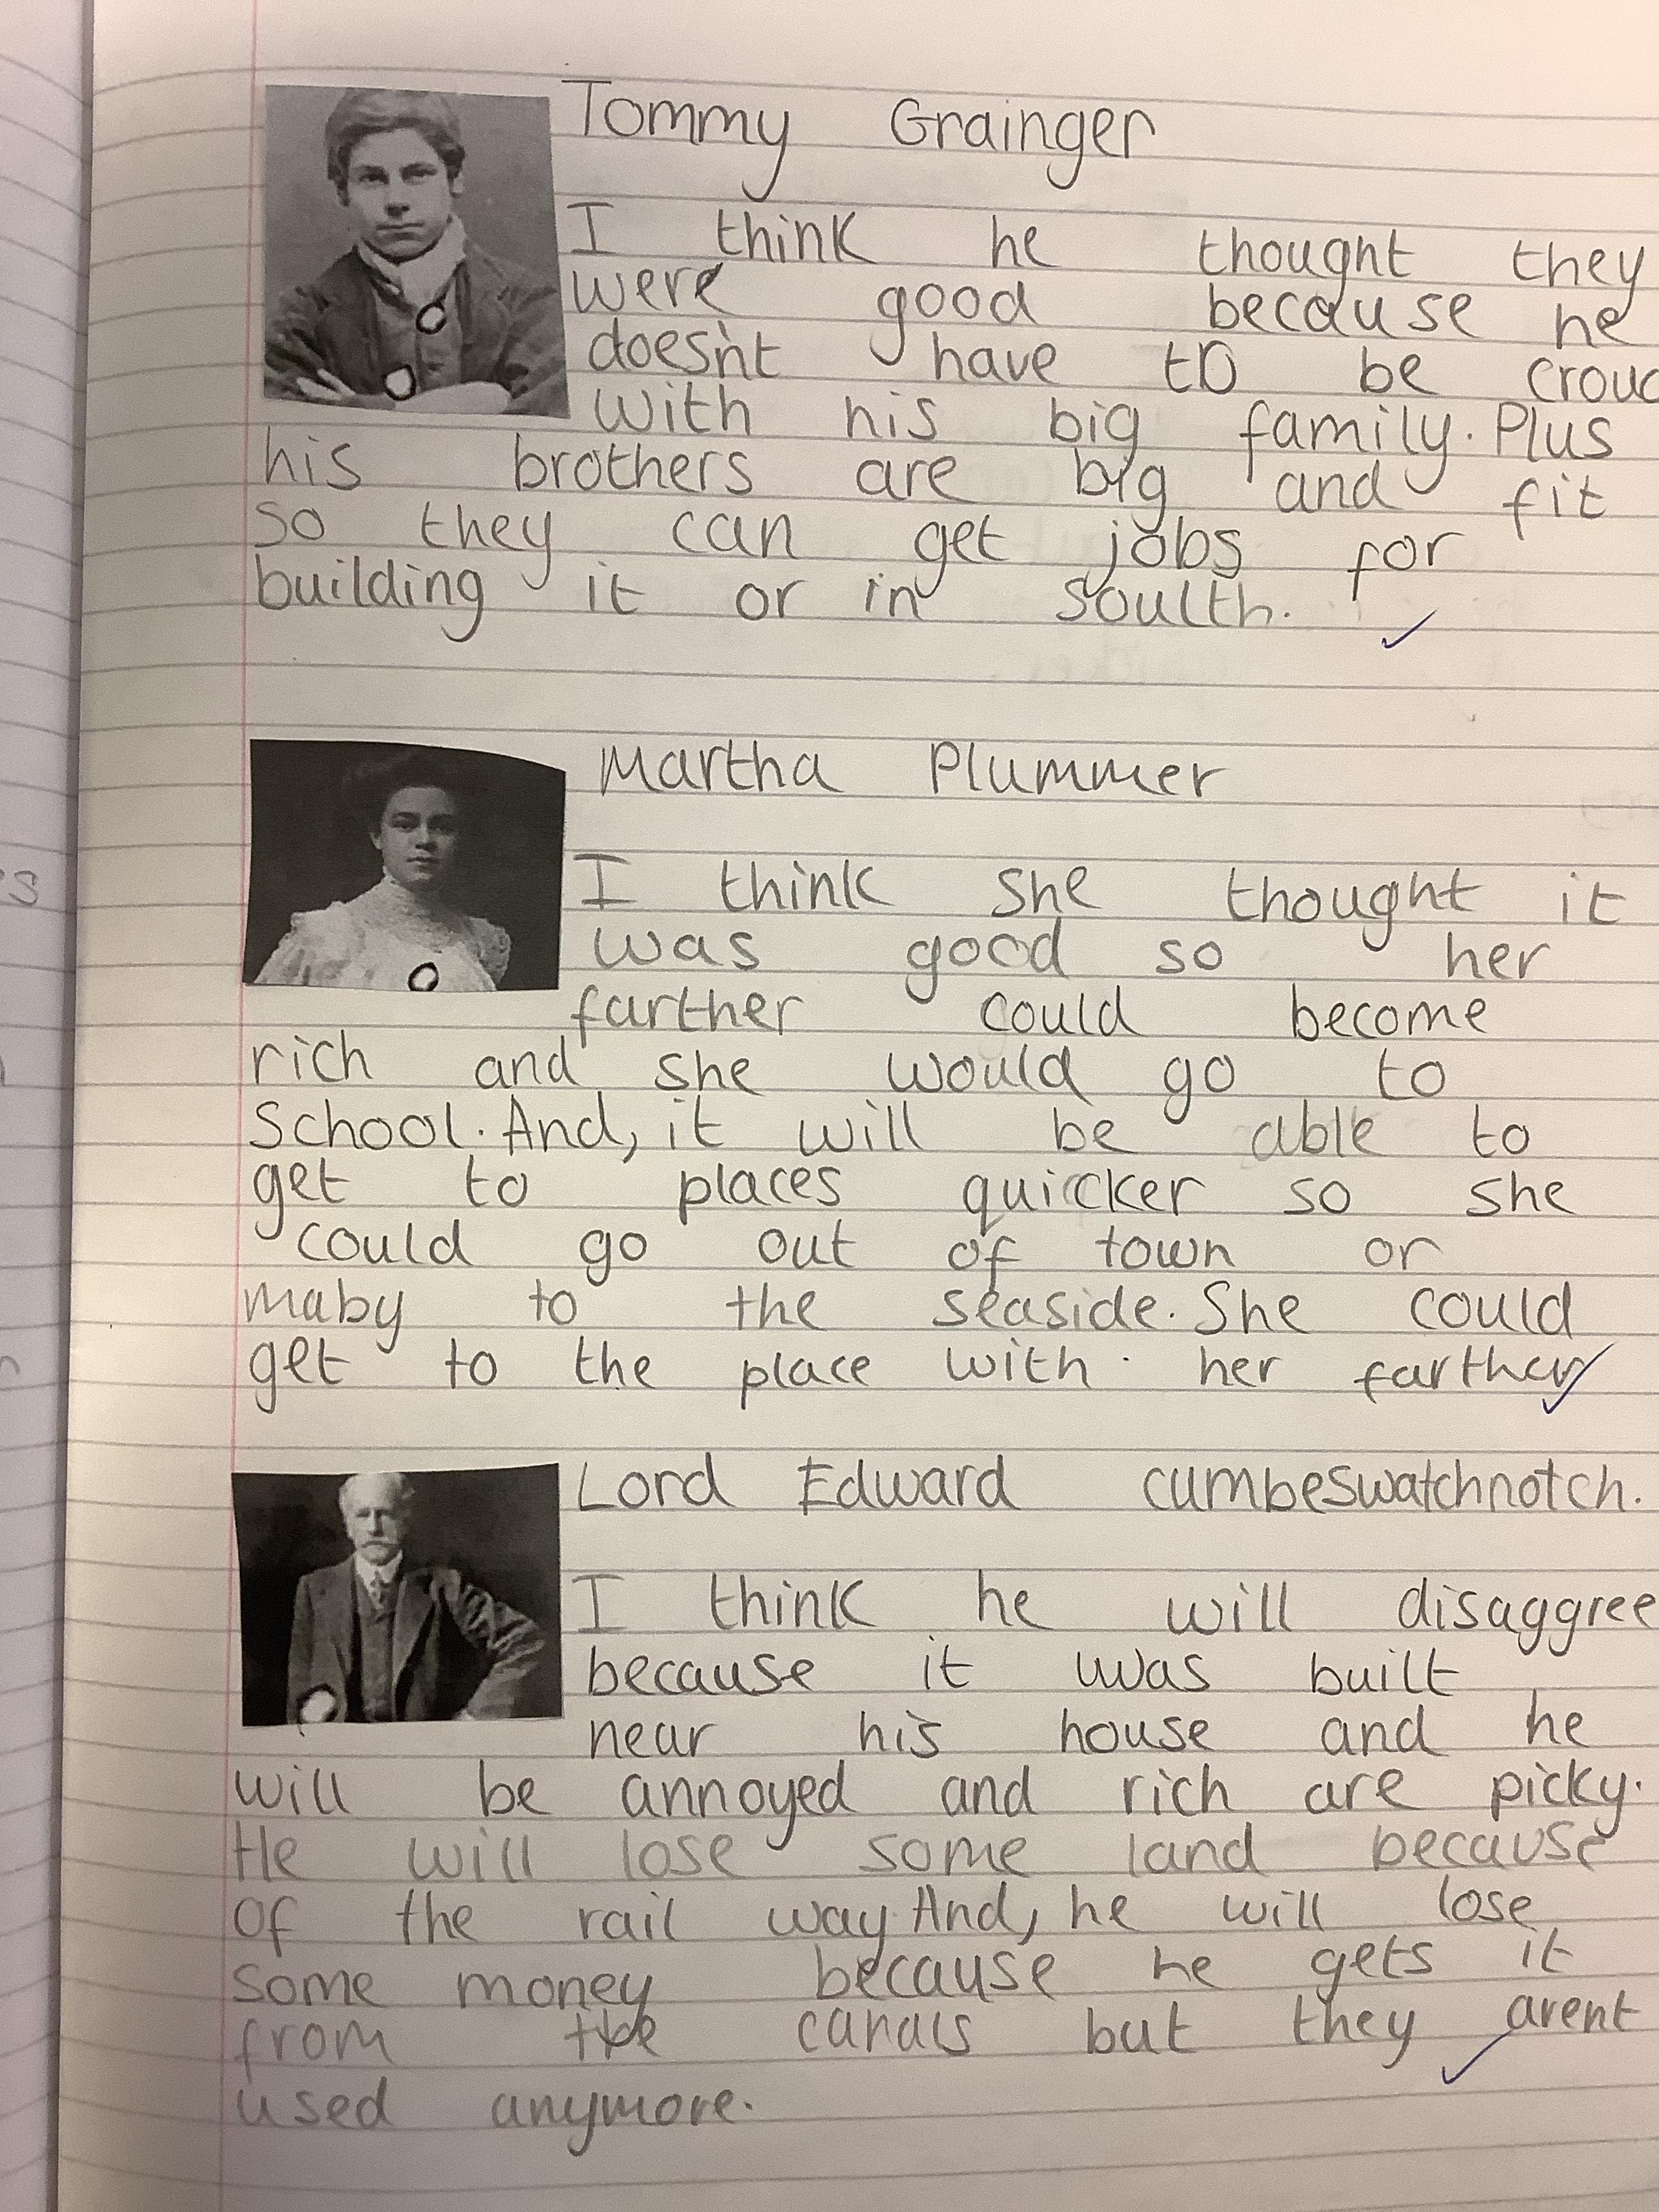 Tommy Grainger
I think he thought they
were good because he
doesn't have to be crouc
with his big family. Plus
his brothers are big and fit
so they can get jobs for
building it or in soulth.
Martha Plummer
I think she thought it
was good so her
farther could become
rich and she would go to
School. And, it will be able to
get to places quicker so she
could go out of town or
maby to the seaside. She could
get to the place with her farther
Lord Edward cumbeswatchnotch.
I think he will disaggree
because it was built
near his house and he
will be annoyed and rich are picky.
He will lose some land because
of the rail way. And, he will lose
some money because he gets it
from the canals but they arent
used anymore.
is